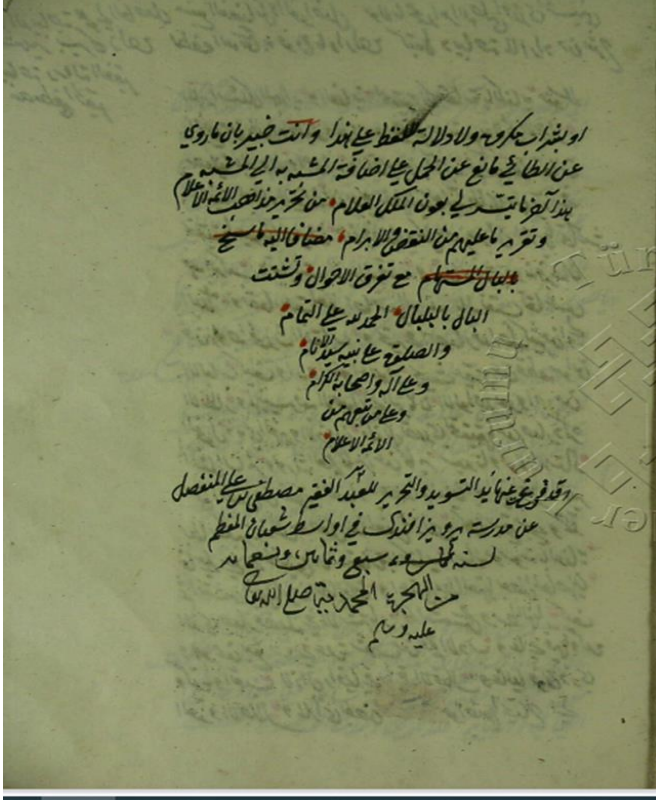 او بشراب مكروه ولا دلالة للفظ على هذا وانت خبير بان ما روي
عن الطائي مانع عن الحمل على اضافة المشبه به الى المشبه
هذا آخر ما تيسر لي بعون الملك العلام من تحرير مذاهب الائمة الاعلام
وتقرير ما عليهم من النقض والابرام مضافا اليه ما سنح
بالبال المستهام مع تفرق الاحوال وتشتت
البال بالبلبال الحمد لله على التمام
والصلوة على نبيه سيد الانام
وعلى آله واصحابه الكرام
وعلى من تبعهم من
الائمة الاعلام
وقد وقع عنها يد التسويد والتحرير للعبد الفقير مصطفى بن علي المنفصل
عن مدرسة پرويز افندي في اواسط شعبان المعظم
لسنة سبع وثمانين وتسعمائة
من الهجرة المحمدية صلى الله تعالى
عليه وسلم